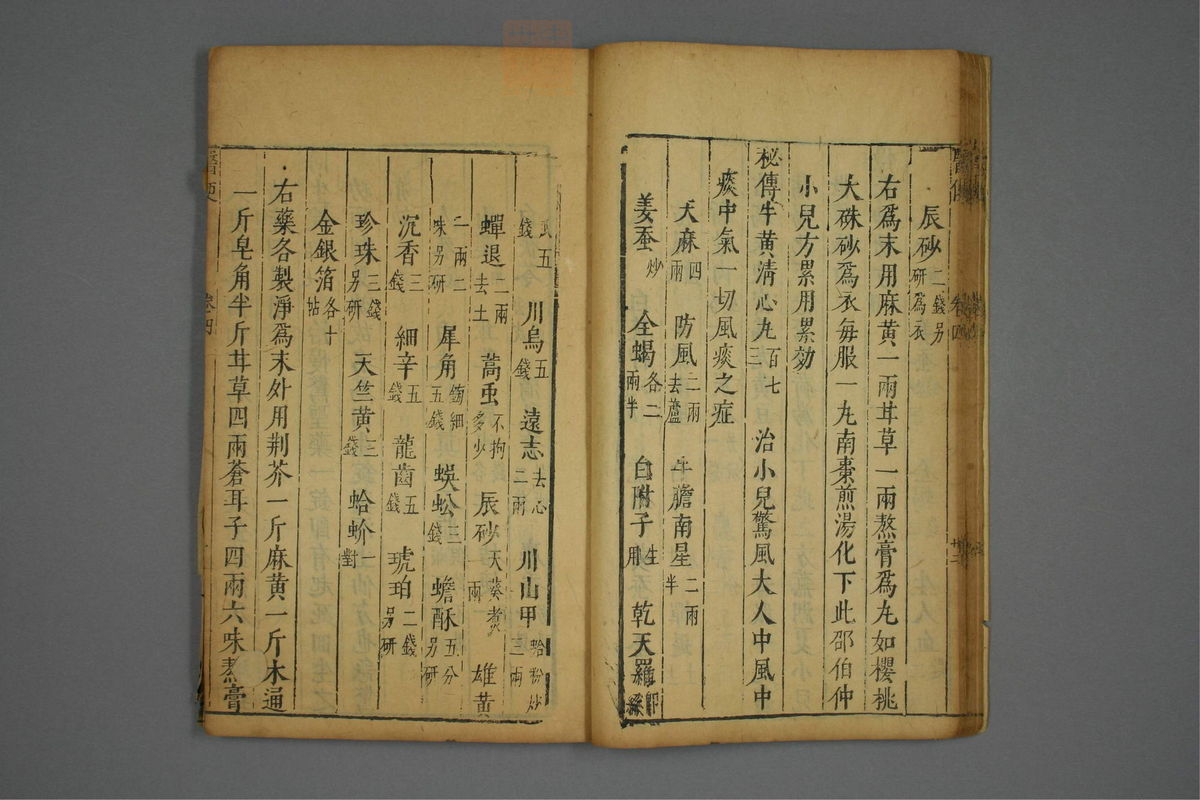 辰砂二錢另研爲衣
右爲末用麻黄一兩甘草一兩熬膏爲丸如櫻桃
大硃砂爲衣每服一丸南棗煎湯化下此邵伯仲
小兒方累用累効
秘傳牛黄清心丸百七三 治小兒驚風大人中風中
痰中氣一切風痰之症
天麻四兩 防風二兩去蘆 牛膽南星二兩半
姜蚕炒 全蝎各二兩半 白附子生用 乾天羅即絲
五錢 川烏五錢 遠志去心二兩 川山甲蛤粉炒三兩
蟬退二兩去土 蒿虫不拘多少 辰砂天葵煮一兩 雄黄
一兩二味另研 犀角鎊細五錢 蜈蚣三錢 蟾酥五分另研
沉香三錢 細辛五錢 龍齒五錢 琥珀二錢另研
珍珠三錢另研 天竺黄三錢 蛤蚧一對
金銀箔各十帖
右藥各製淨爲末外用荆芥一斤麻黄一斤木通
一斤皂角半斤甘草四兩蒼耳子四兩六味熬膏
卷四